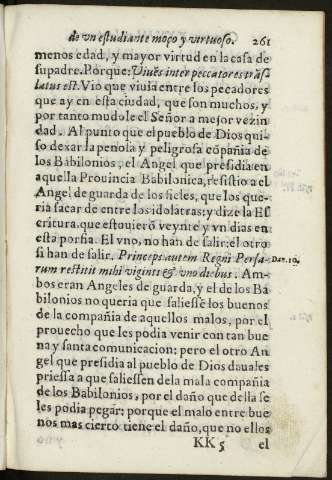 de vn estudiante moço y virtuoso. 261
menos edad, y mayor virtud en la casa de
su padre. Porque: Viuẽs inter peccatores trãs
latus est. Vio que viuia entre los pecadores
que ay en esta ciudad, que son muchos, y
por tanto mudole el Señor a mejor vezin
dad. Al punto que el pueblo de Dios qui-
so dexar la penosa y peligrosa cõpañia de
los Babilonios, el Angel que presidia en
aquella Prouincia Babilonica, resistio a el
Angel de guarda de los fieles, que los que-
ria sacar de entre los idolatras: y dize la Es
critura. que estuuierõ veynte y vn dias en
esta porfia. El vno, no han de salir: el otro
si han de salir. Princeps autem Regni Persa-
Dan. 10.
rum restitit mihi viginti & vno diebus. Am-
bos eran Angeles de guarda, y el de los Ba
bilonios no queria que saliessẽ los buenos
de la compañia de aquellos malos, por el
prouecho que les podia venir con tan bue
na y santa comunicacion: pero el otro An
gel que presidia al pueblo de Dios dauales
priessa a que saliessen dela mala compañia
de los Babilonios, por el daño que della se
les podia pegar: porque el malo entre bue
nos mas cierto tiene el daño, que no ellos
KK 5 el